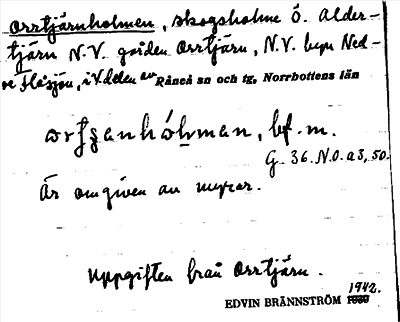 Orrtjärnholmen, skogsholme Ö. Alder-
tjärn N.V. gården Orrtjärn, N.V. byn Ned-
re Flåsjön, i V. delen av Råneå sn och tg, Norrbottens län
hóḥman, bf. m.
G. 36. N.O. a3, 50.
Är omgiven av myrar.
Uppgiften från Orrtjärn.
1942.
EDVIN BRÄNNSTRÖM 1939